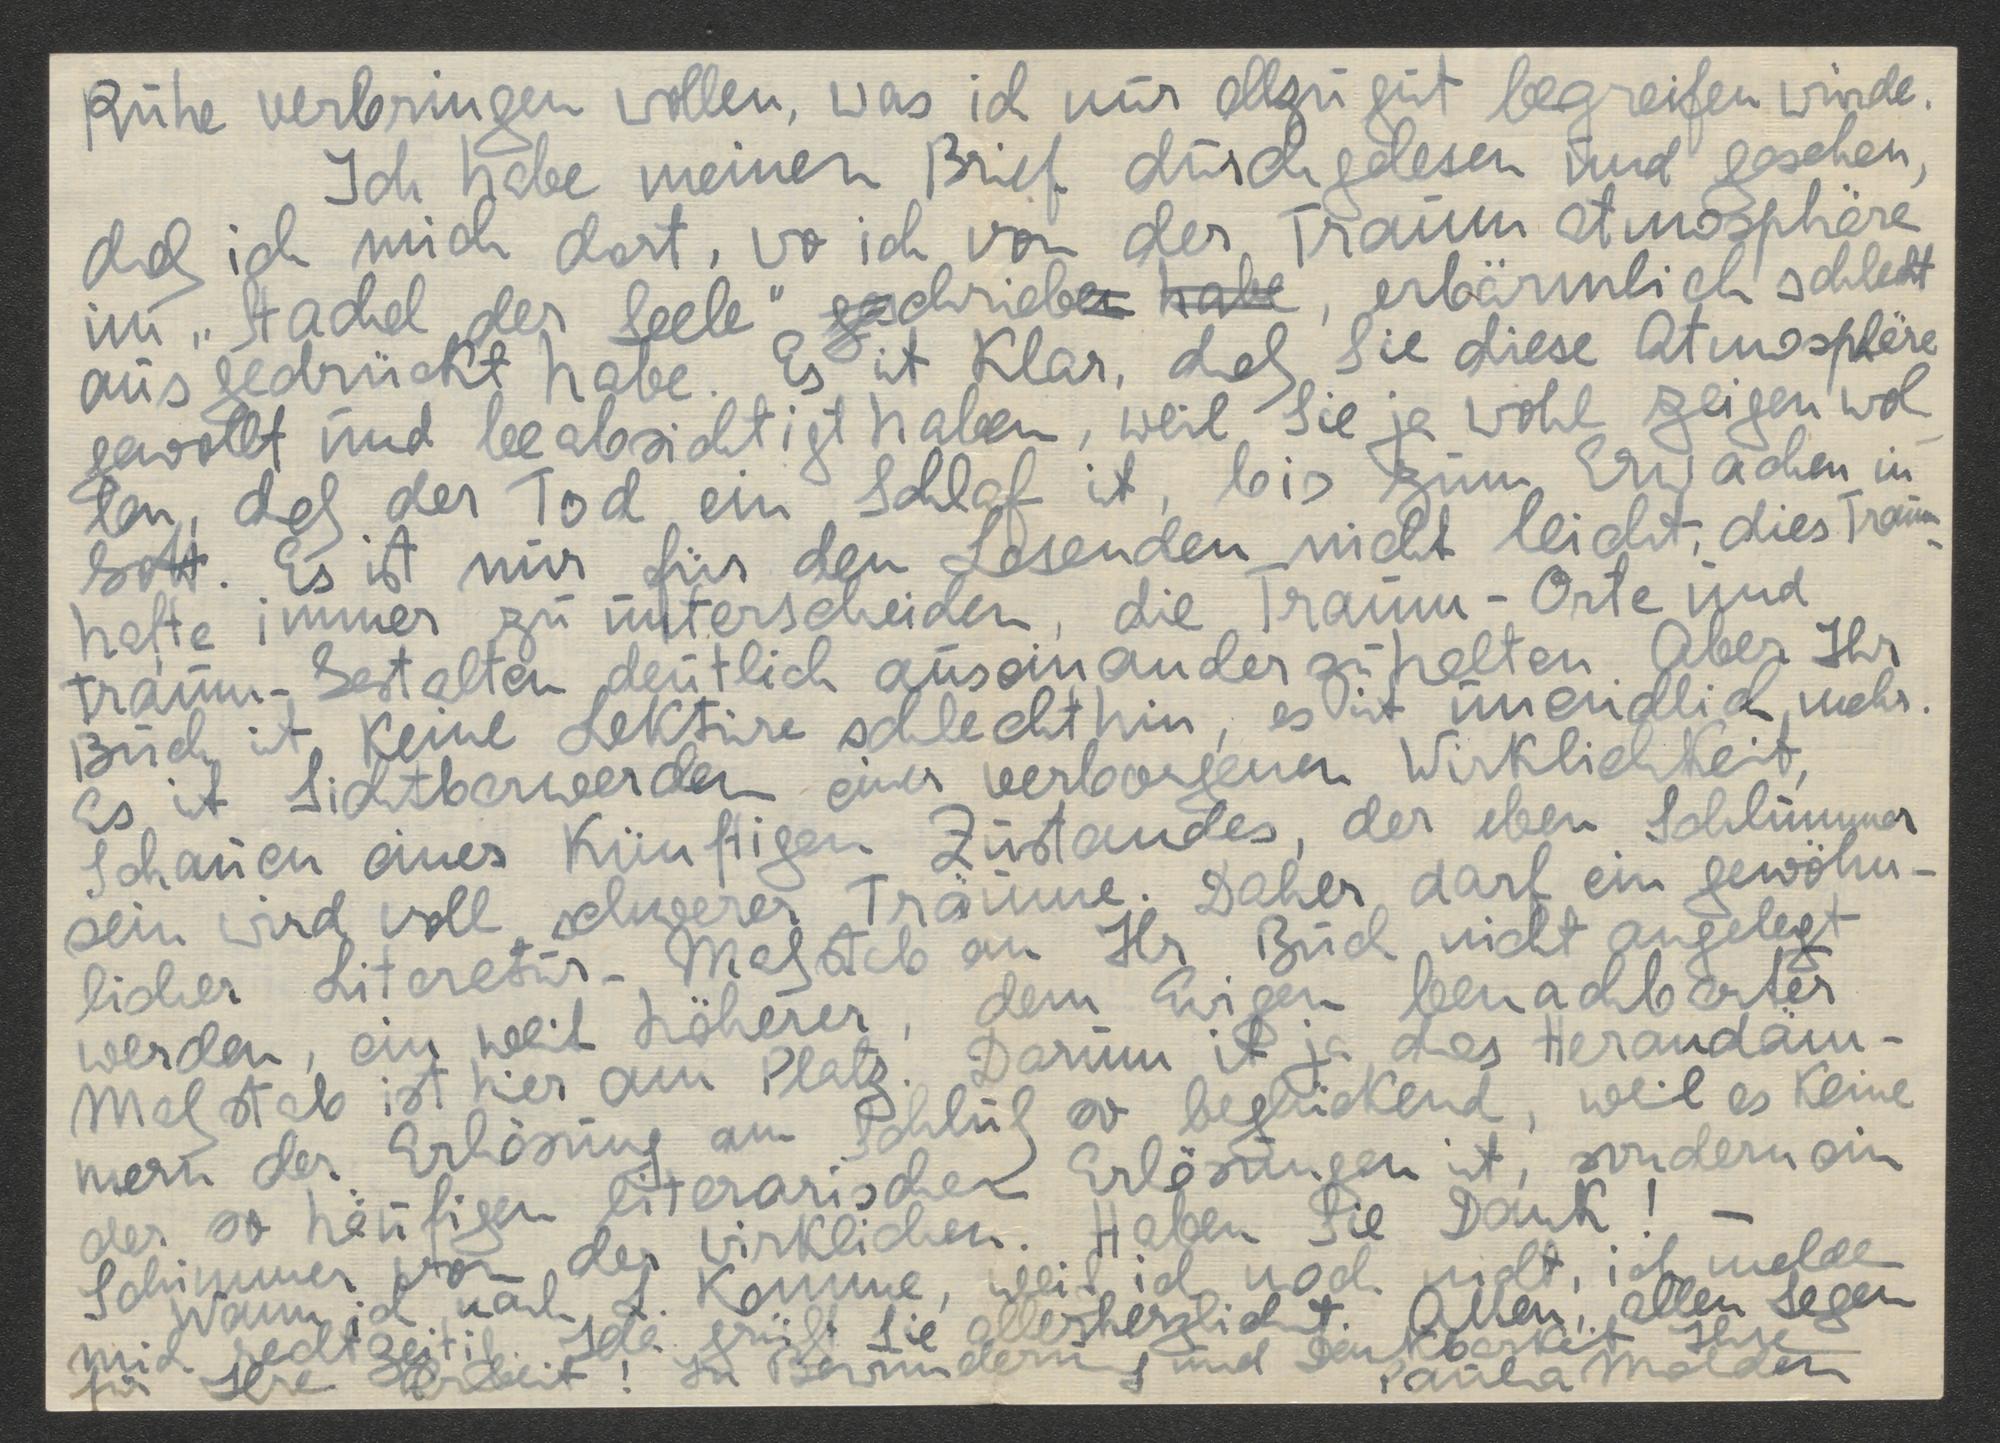 Ruhe verbringen wollen, was ich nur allzu gut begreifen würde.
Ich habe meinen Brief durchgelesen und gesehen,
daß ich mich dort, wo ich von der Traum atmosphäre
im „Stachel der Seele" geschrieben habe, erbärmlich schlecht
ausgedrückt habe. Es ist klar, daß Sie diese Atmosphäre
gewollt und beabsichtigt haben, weil Sie ja wohl zeigen wol-
ten, daß der Tod ein Schlaf ist, bis zum Erwachen in
Gott. Es ist nur für den Lesenden nicht leicht, dies Traum-
hafte immer zu unterscheiden, die Traum-Orte und
Traum-Gestalten deutlich auseinanderzuhalten. Aber Ihr
Buch ist keine Lektüre schlechthin, es ist unendlich mehr.
Es ist Sichtbarwerden einer verborgenen Wirklichkeit,
Schauen eines künftigen Zustandes, der eben Schlummer
sein wird voll schwerer Träume. Daher darf ein gewöhn-
licher Literatur-Maßstab an Ihr Buch nicht angelegt
werden, ein weit höherer, dem Ewigen benachbarter
Maßstab ist hier am Platz. Darum ist ja das Herandäm-
mern der Erlösung am Schluß so beglückend, weil es keine
der so häufigen literarischen Erlösungen ist, sondern ein
Schimmer von der wirklichen. Haben Sie Dank! –
Wann ich nach L. komme, weiß ich noch nicht, ich melde
mich rechtzeitig. Ida grüßt Sie allerherzlichst. Allen, allen Segen
für Ihre Arbeit! In Bewunderung und Dankbarkeit Ihre
Paula Molden